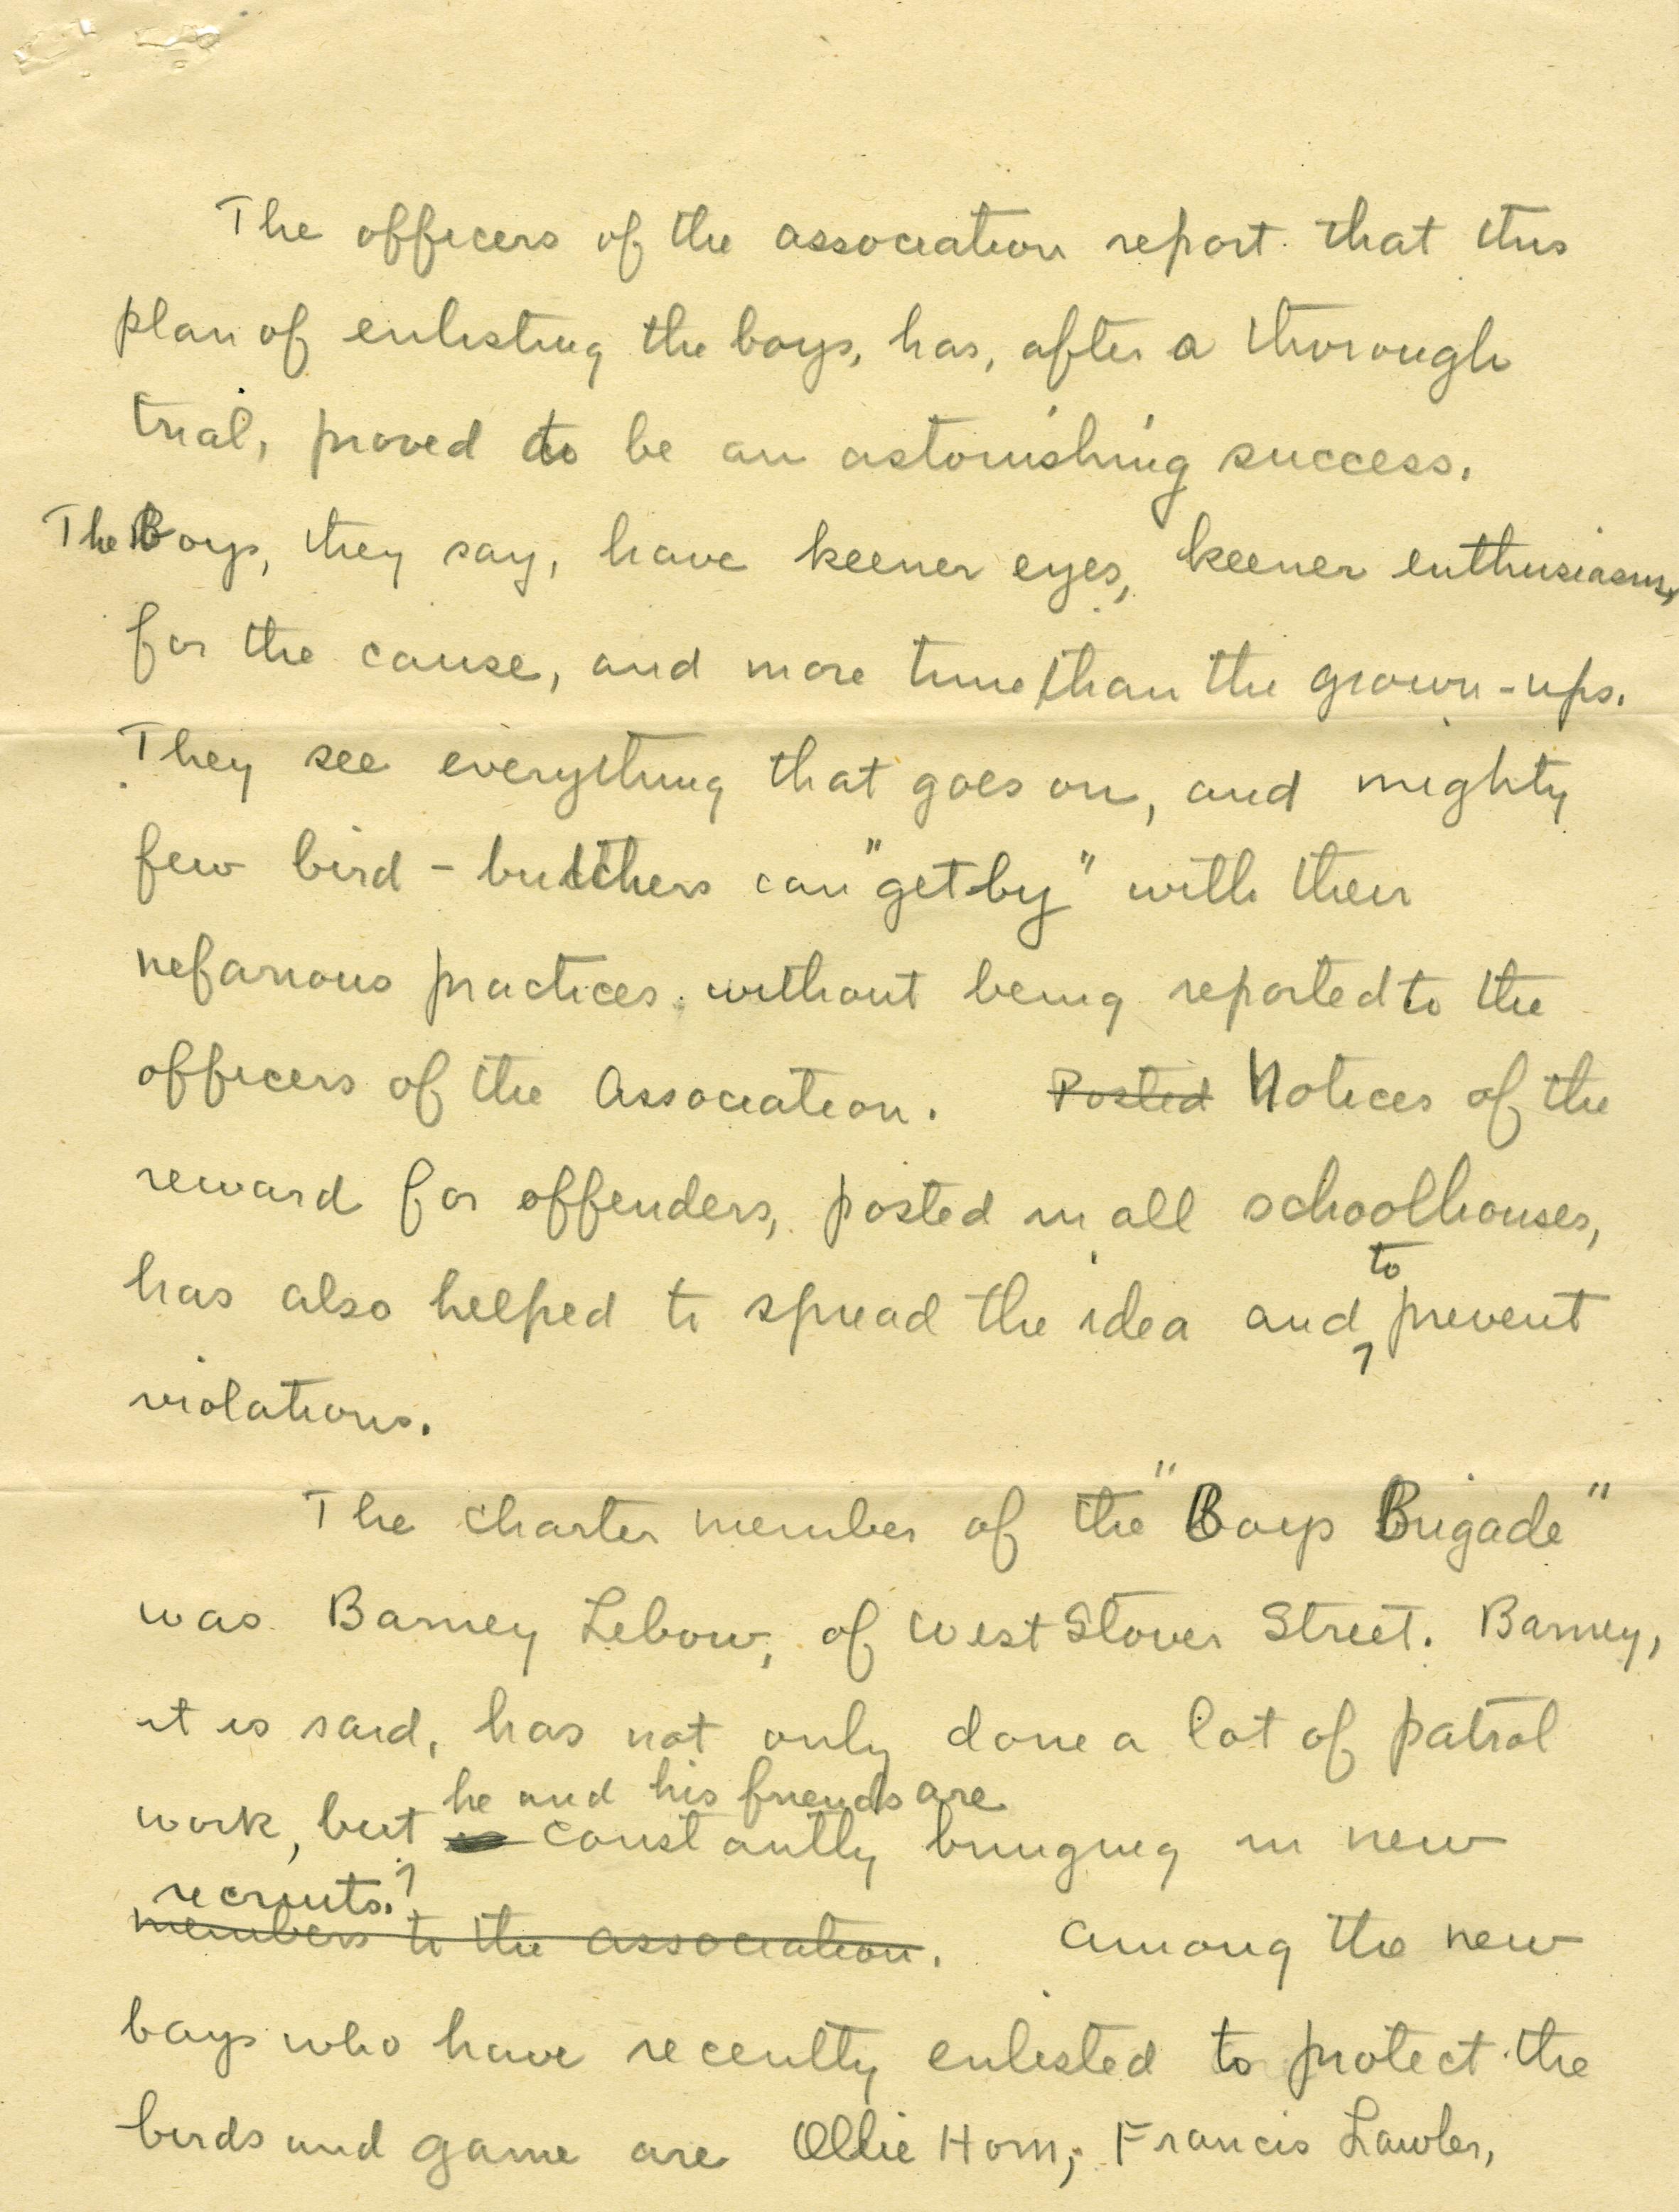 The officers of the association report that this
plan of enlisting the boys, has, after a thorough
trial, proved to be an astonishing success.
The Boys, they say, have keener eyes, keener enthusiasm,
for the cause, and more time than the grown-ups.
They see everything that goes on, and mighty
few bird-butchers can "get by" with their
nefarious practices without being reported to the
officers of the Association. Posted Notices of the
reward for offenders, posted in all schoolhouses,
has also helped to spread the idea and to prevent
violations.
The charter member of the "Boys Brigade"
was Barney Lebow, of West Stover Street. Barney,
it is said, has not only done a lot of patrol
he and his friends are
work, but constantly bringing in new
recruits.
members to the association. Among the new
boys who have recently enlisted to protect the
birds and game are Ollie Horn, Francis Lawler,